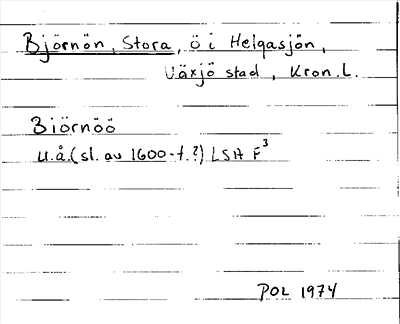 Björnön, Stora, ö i Helgasjön,
Växjö stad, Kron. L.
Biörnöö
u.å.(sl. av 1600-t.?) LSH F³
POL 1974